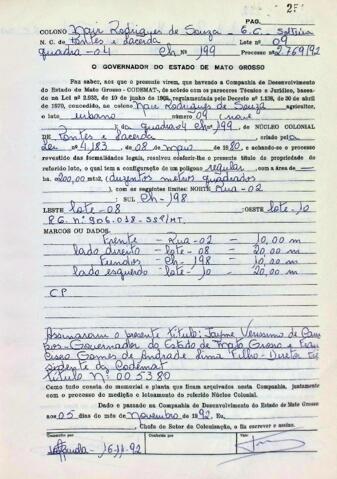 PAG.
COLONO Nair Rodrigues de Souza - E.C. Solteira
N. C. de Pontes e Lacerda Lote nº 09
quadra-04 Ch nº 199 Processo nº 2769/92
O GOVERNADOR DO ESTADO DE MATO GROSSO
Faz saber, aos que o presente virem, que havendo a Companhia de Desenvolvimento
do Estado de Mato Grosso - CODEMAT-, de acôrdo com os pareceres Técnico e Jurídico, basea-
da na Lei nº 2.933, de 10 de junho de 1969, regulamentada pelo Decreto nº 1.138, de 30 de abril
de 1970, concedido, ao colono Nair Rodrigues de Souza agricultor,
o lote urbano número 09 (nove
) da quadra 04 Ch nº 199, do NÚCLEO COLONIAL
DE Pontes e Lacerda criado pelo
Lei nº 4.183, de 08 de maio de 1980, e achando-se o processo
revestido das formalidades legais, resolveu conferir-lhe o presente título de propriedade
do referido lote, o qual tem a configuração de um polígono regular, com a área de
ha. 200,00 mts2 (duzentos metros quadrados
), com os seguintes limites: NORTE Rua-02
SUL Ch-198
LESTE lote-08 OESTE lote-10
R.G. nº 906.038-SSP/MT.
MARCOS OU DADOS:
frente - Rua-02 - 10,00 m
lado direito - lote-08 - 20,00 m
fundos - Ch-198 - 10,00 m
lado esquerdo - lote-10 - 20,00 m
CP
Assinaram o presente título: Jayme Verissimo de Cam
pos-Governador do Estado de Mato Grosso e Fran
cisco Gomes de Andrade Lima Filho - Diretor Pre
sidente da Codemat
título nº 005380
Como tudo consta do memorial e planta que ficam arquivados nesta Companhia, juntamente
com o processo de medição e loteamento do referido Núcleo Colonial.
Dado e passado na Companhia de Desenvolvimento do Estado de Mato Grosso
aos 05 dias do mês de Novembro de 1992. Eu,
Chefe do Setor de Colonização, o fiz escrever e assino.
Conferente
Visto
16-11-92